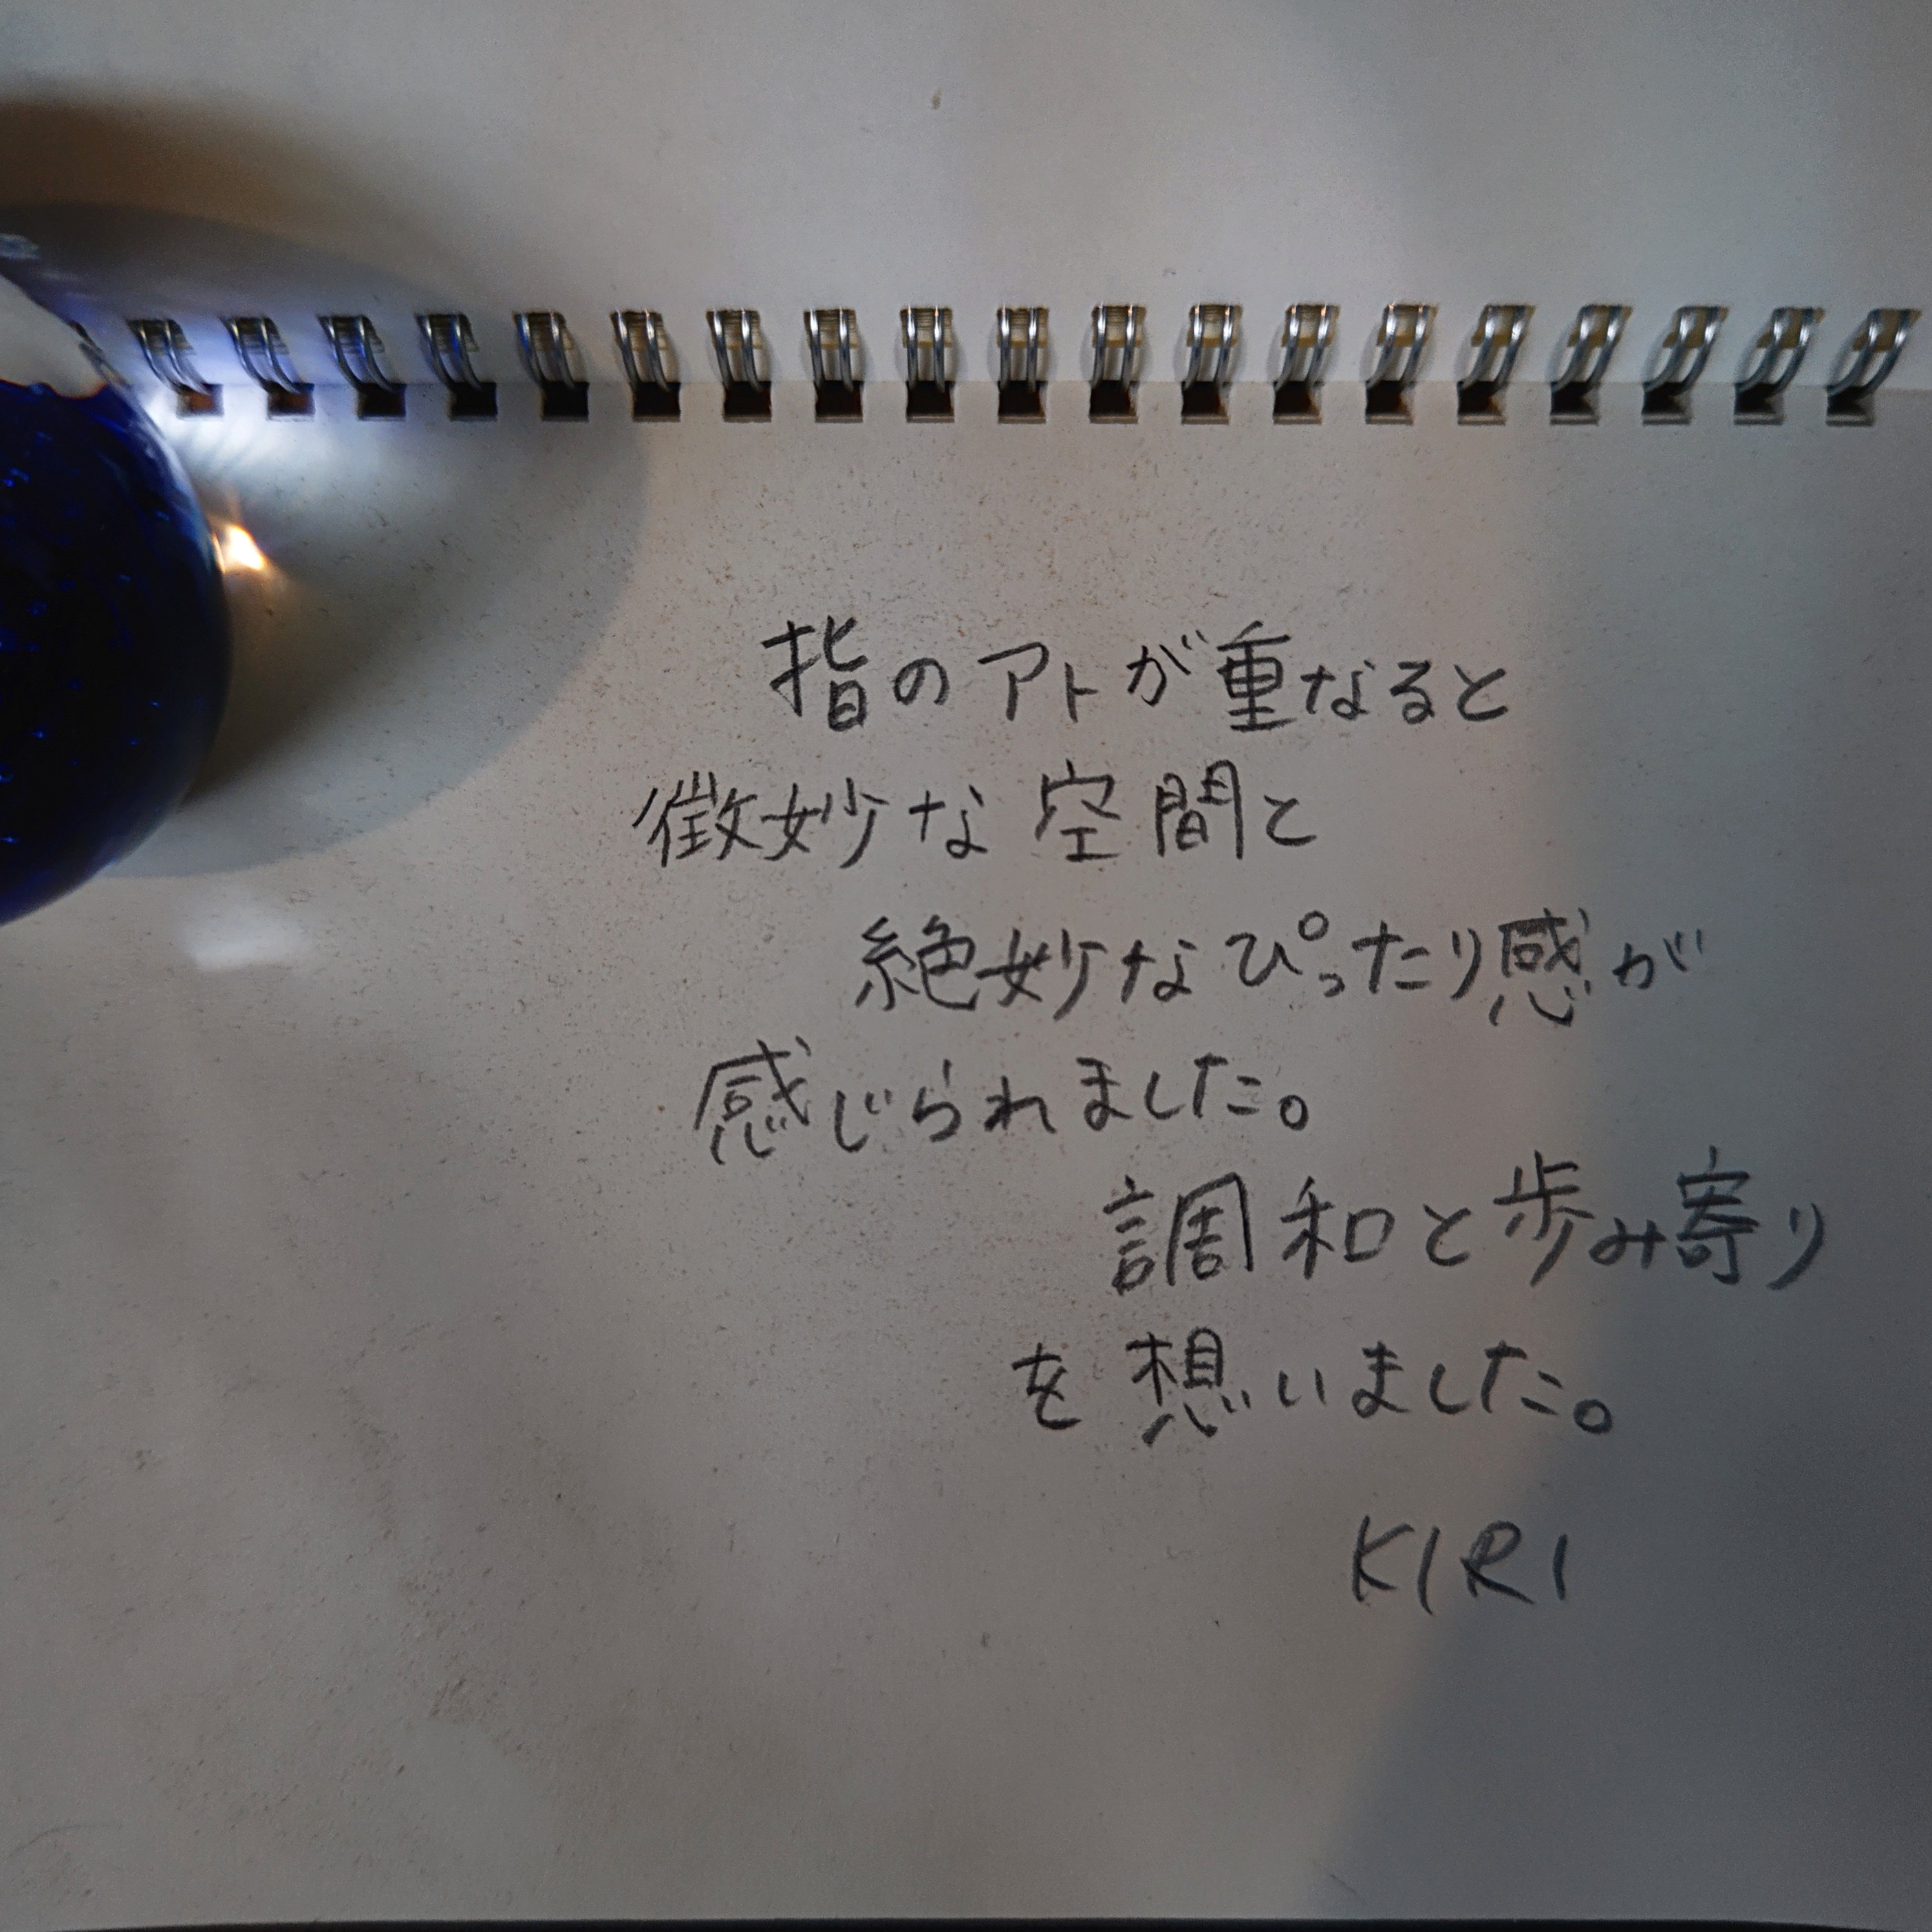 指のアトが重なると
微妙な空間と
絶妙なぴったり感が
感じられました。
調和と歩み寄り
を想いました。
KIRI